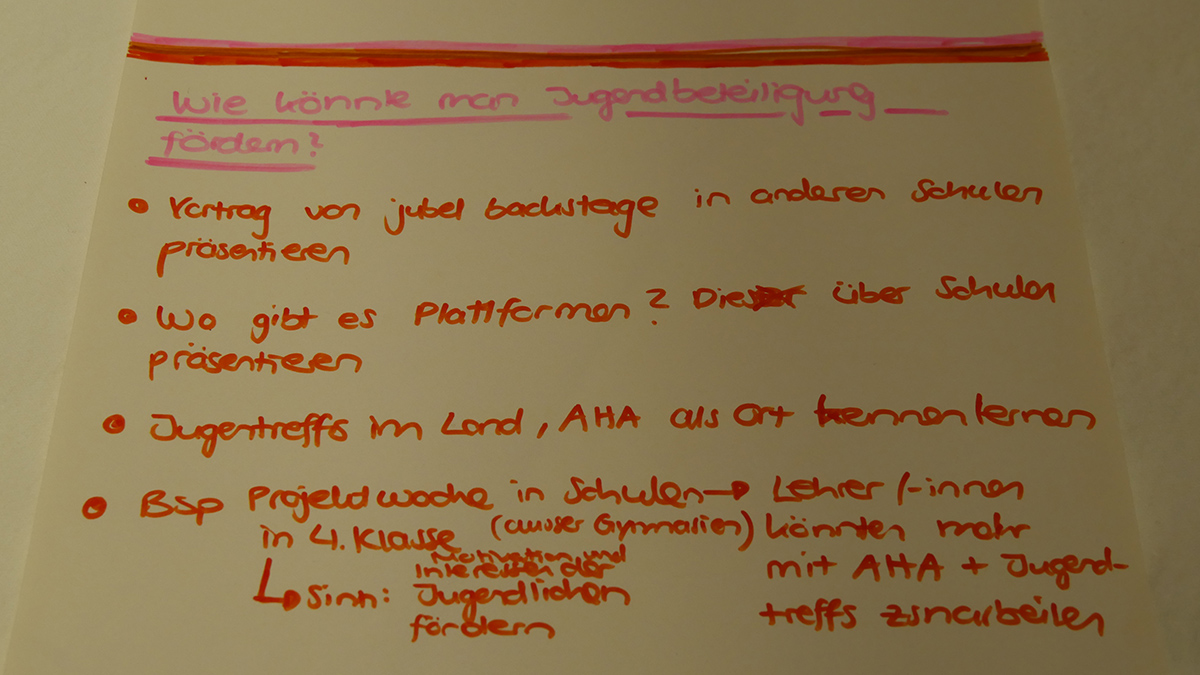 Wie könnte man Jugendbeteiligung
fördern?
• Vortrag von jubel backstage in anderen Schulen
präsentieren
• Wo gibt es Plattformen? Dies über Schulen
präsentieren
• Jugentreffs im Land, AHA als Ort kennen lernen
• Bsp Projektwoche in Schulen → Lehrer/-innen
in 4. Klasse (ausser Gymnasien) könnten mehr
Motivation und
Interessen der mit AHA + Jugend-
↳ Sinn: Jugendlichen
fördern treffs zsnarbeiten